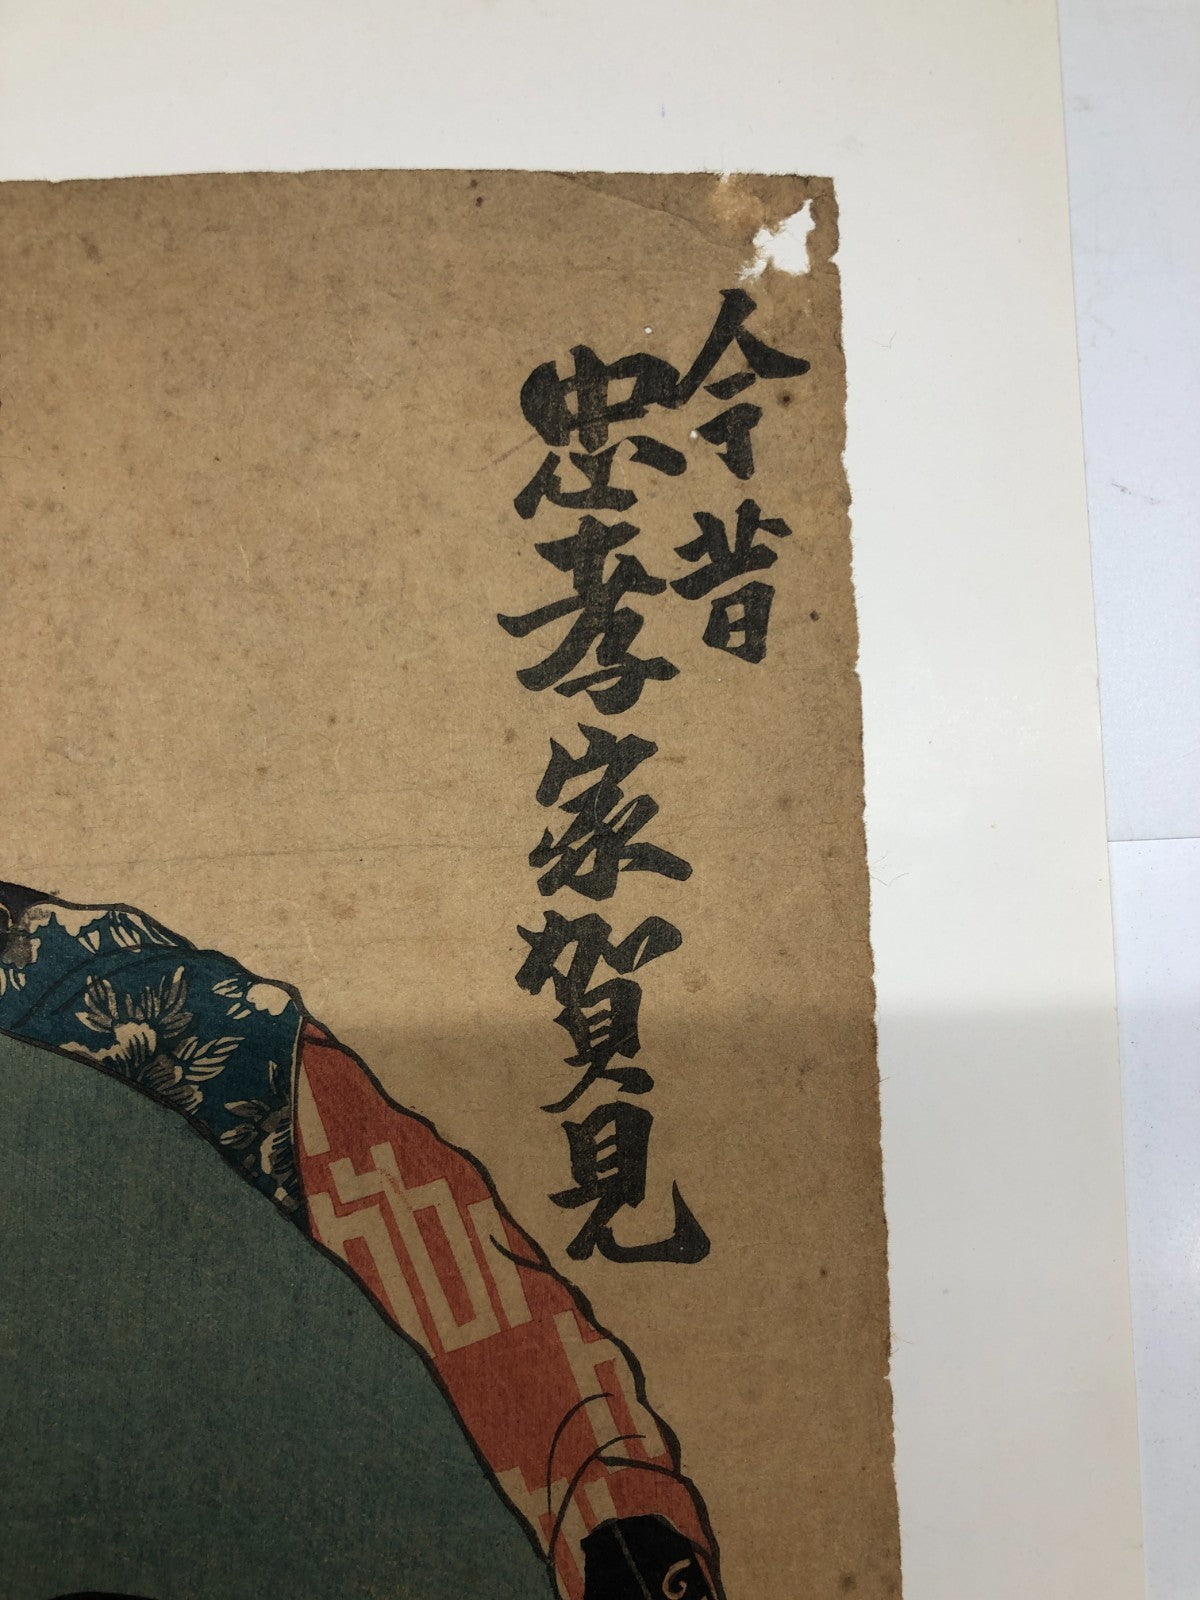 今昔
忠孝家賀見